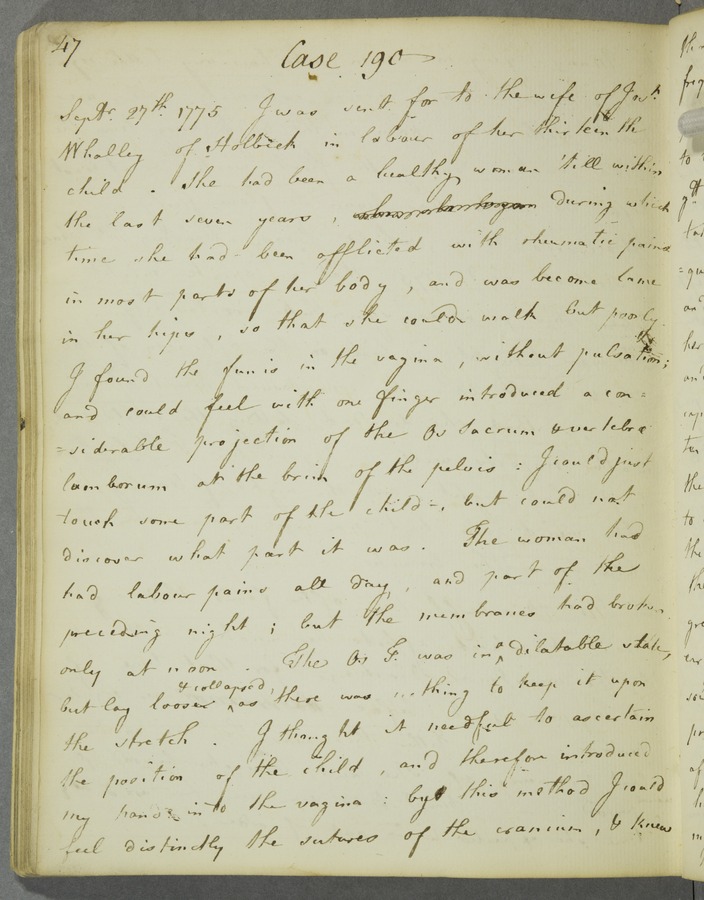 47
Case 190
Septr. 27th. 1775 I was sent for to the wife of Jno.
Whalley of Holbeck in labour of her thirteenth
child. She had been a healthy woman 'till within
the last seven years, during which
time she had been afflicted with rheumatic pains
in most parts of her body, and was become lame
in her hips, so that she could walk but poorly.
I found the funis in the vagina, without pulsation;
and could feel with one finger introduced a con=
=siderable projection of the Os Sacrum & vertebræ
lumborum at the brim of the pelvis: I could just
touch some part of the child, but could not
discover what part it was. The woman had
had labour pains all day, and part of the
preceding night; but the membranes had broken
only at noon. The Os T. was in a dilatable state,
but lay loose & collapsed, as there was nothing to keep it upon
the stretch. I thought it needful to ascertain
the position of the child, and therefore introduced
my hand into the vagina: by this method I could
feel distinctly the sutures of the cranium, & knew